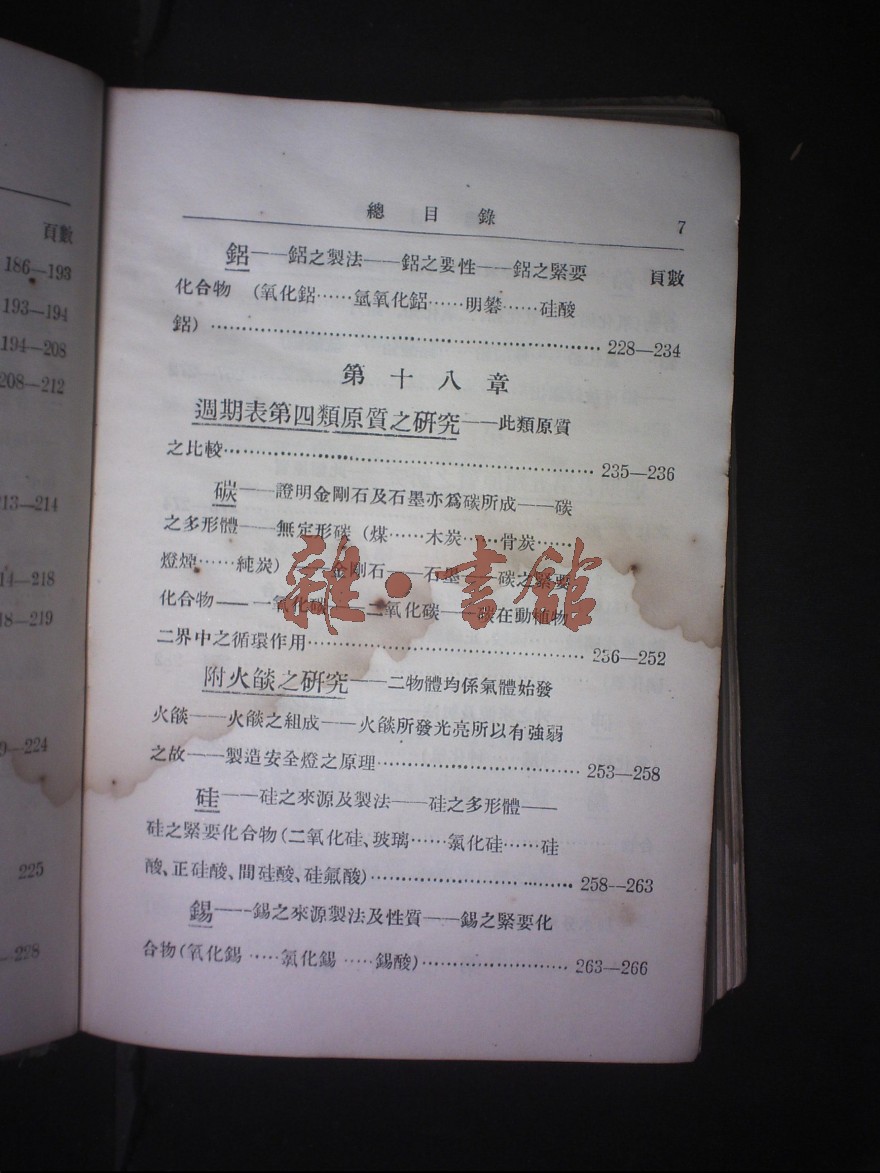 頁數
186—193
193—194
194—208
208—212
13—214
14—218
18—219
—224
225
—228
總目錄 7
鋁——鋁之製法——鋁之要性——鋁之緊要 頁數
化合物 (氧化鋁……氫氧化鋁……明礬……硅酸
鋁)……………………………………………………228—234
第十八章
週期表第四類原質之研究——此類原質
之比較………………………………………………235—236
碳——證明金剛石及石墨亦爲碳所成——碳
之多形體——無定形碳 (煤……木炭……骨炭……
燈煙……純炭)——金剛石——石墨——碳之緊要
化合物——一氧化碳——二氧化碳——碳在動植物
二界中之循環作用…………………………………236—252
附火燄之研究——二物體均係氣體始發
火燄——火燄之組成——火燄所發光亮所以有強弱
之故——製造安全燈之原理………………………253—258
硅——硅之來源及製法——硅之多形體——
硅之緊要化合物(二氧化硅、玻璃……氯化硅……硅
酸、正硅酸、間硅酸、硅氟酸)………………………258—263
錫——錫之來源製法及性質——錫之緊要化
合物(氧化錫……氯化錫……錫酸)…………………263—266
雜·書館